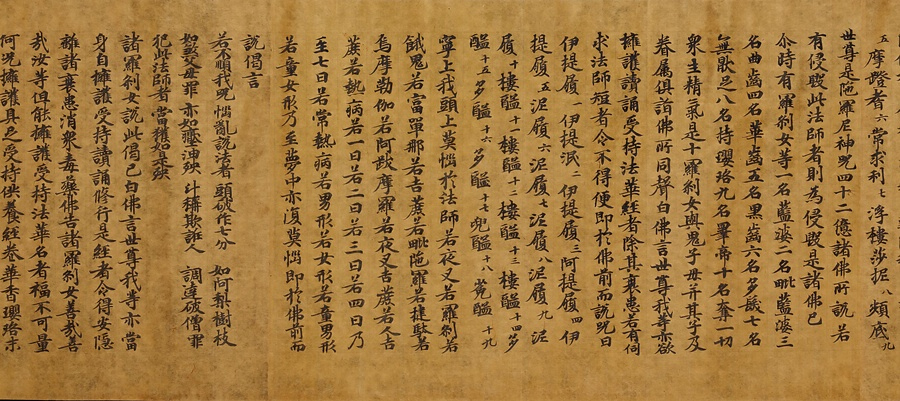 五摩蹬耆六常求利七浮樓莎抳八頞底九
世尊是陁羅尼神呪四十二億諸佛所說若
有侵毀此法師者則為侵毀是諸佛已
尒時有羅刹女等一名藍婆二名毗藍婆三
名曲齒四名華齒五名黑齒六名多髮七名
無猒足八名持瓔珞九名睪帝十名奪一切
衆生精氣是十羅刹女與鬼子母并其子及
眷属俱詣佛所同聲白佛言世尊我等亦欲
擁護讀誦受持法華經者除其衰患若有伺
求法師短者令不得便即於佛前而說呪曰
伊提履一伊提泯二伊提履三阿提履四伊
提履五泥履六泥履七泥履八泥履九泥
履十樓醯十一樓醯十二樓醯十三樓醯十四多
醯十五多醯十六多醯十七兜醯十八㝹醯十九
寧上我頭上莫惱於法師若夜叉若羅刹若
餓鬼若富單那若吉蔗若毗陁羅若揵馱若
烏摩勒伽若阿跋摩羅若夜叉吉蔗若人吉
蔗若熱病若一日若二日若三日若四日乃
至七日若常熱病若男形若女形若童男形
若童女形乃至夢中亦復莫惱即於佛前而
說偈言
若不順我呪 惱亂說法者 頭破作七分 如阿梨樹枝
如煞父母罪 亦如壓油殃 斗秤欺誑人 調達破僧罪
犯此法師者 當獲如是殃
諸羅刹女說此偈已白佛言世尊我等亦當
身自擁護受持讀誦修行是經者令得安隱
離諸衰患消衆毒藥佛告諸羅刹女善哉善
哉汝等但能擁護受持法華名者福不可量
何況擁護具足受持供養經卷華香瓔珞末